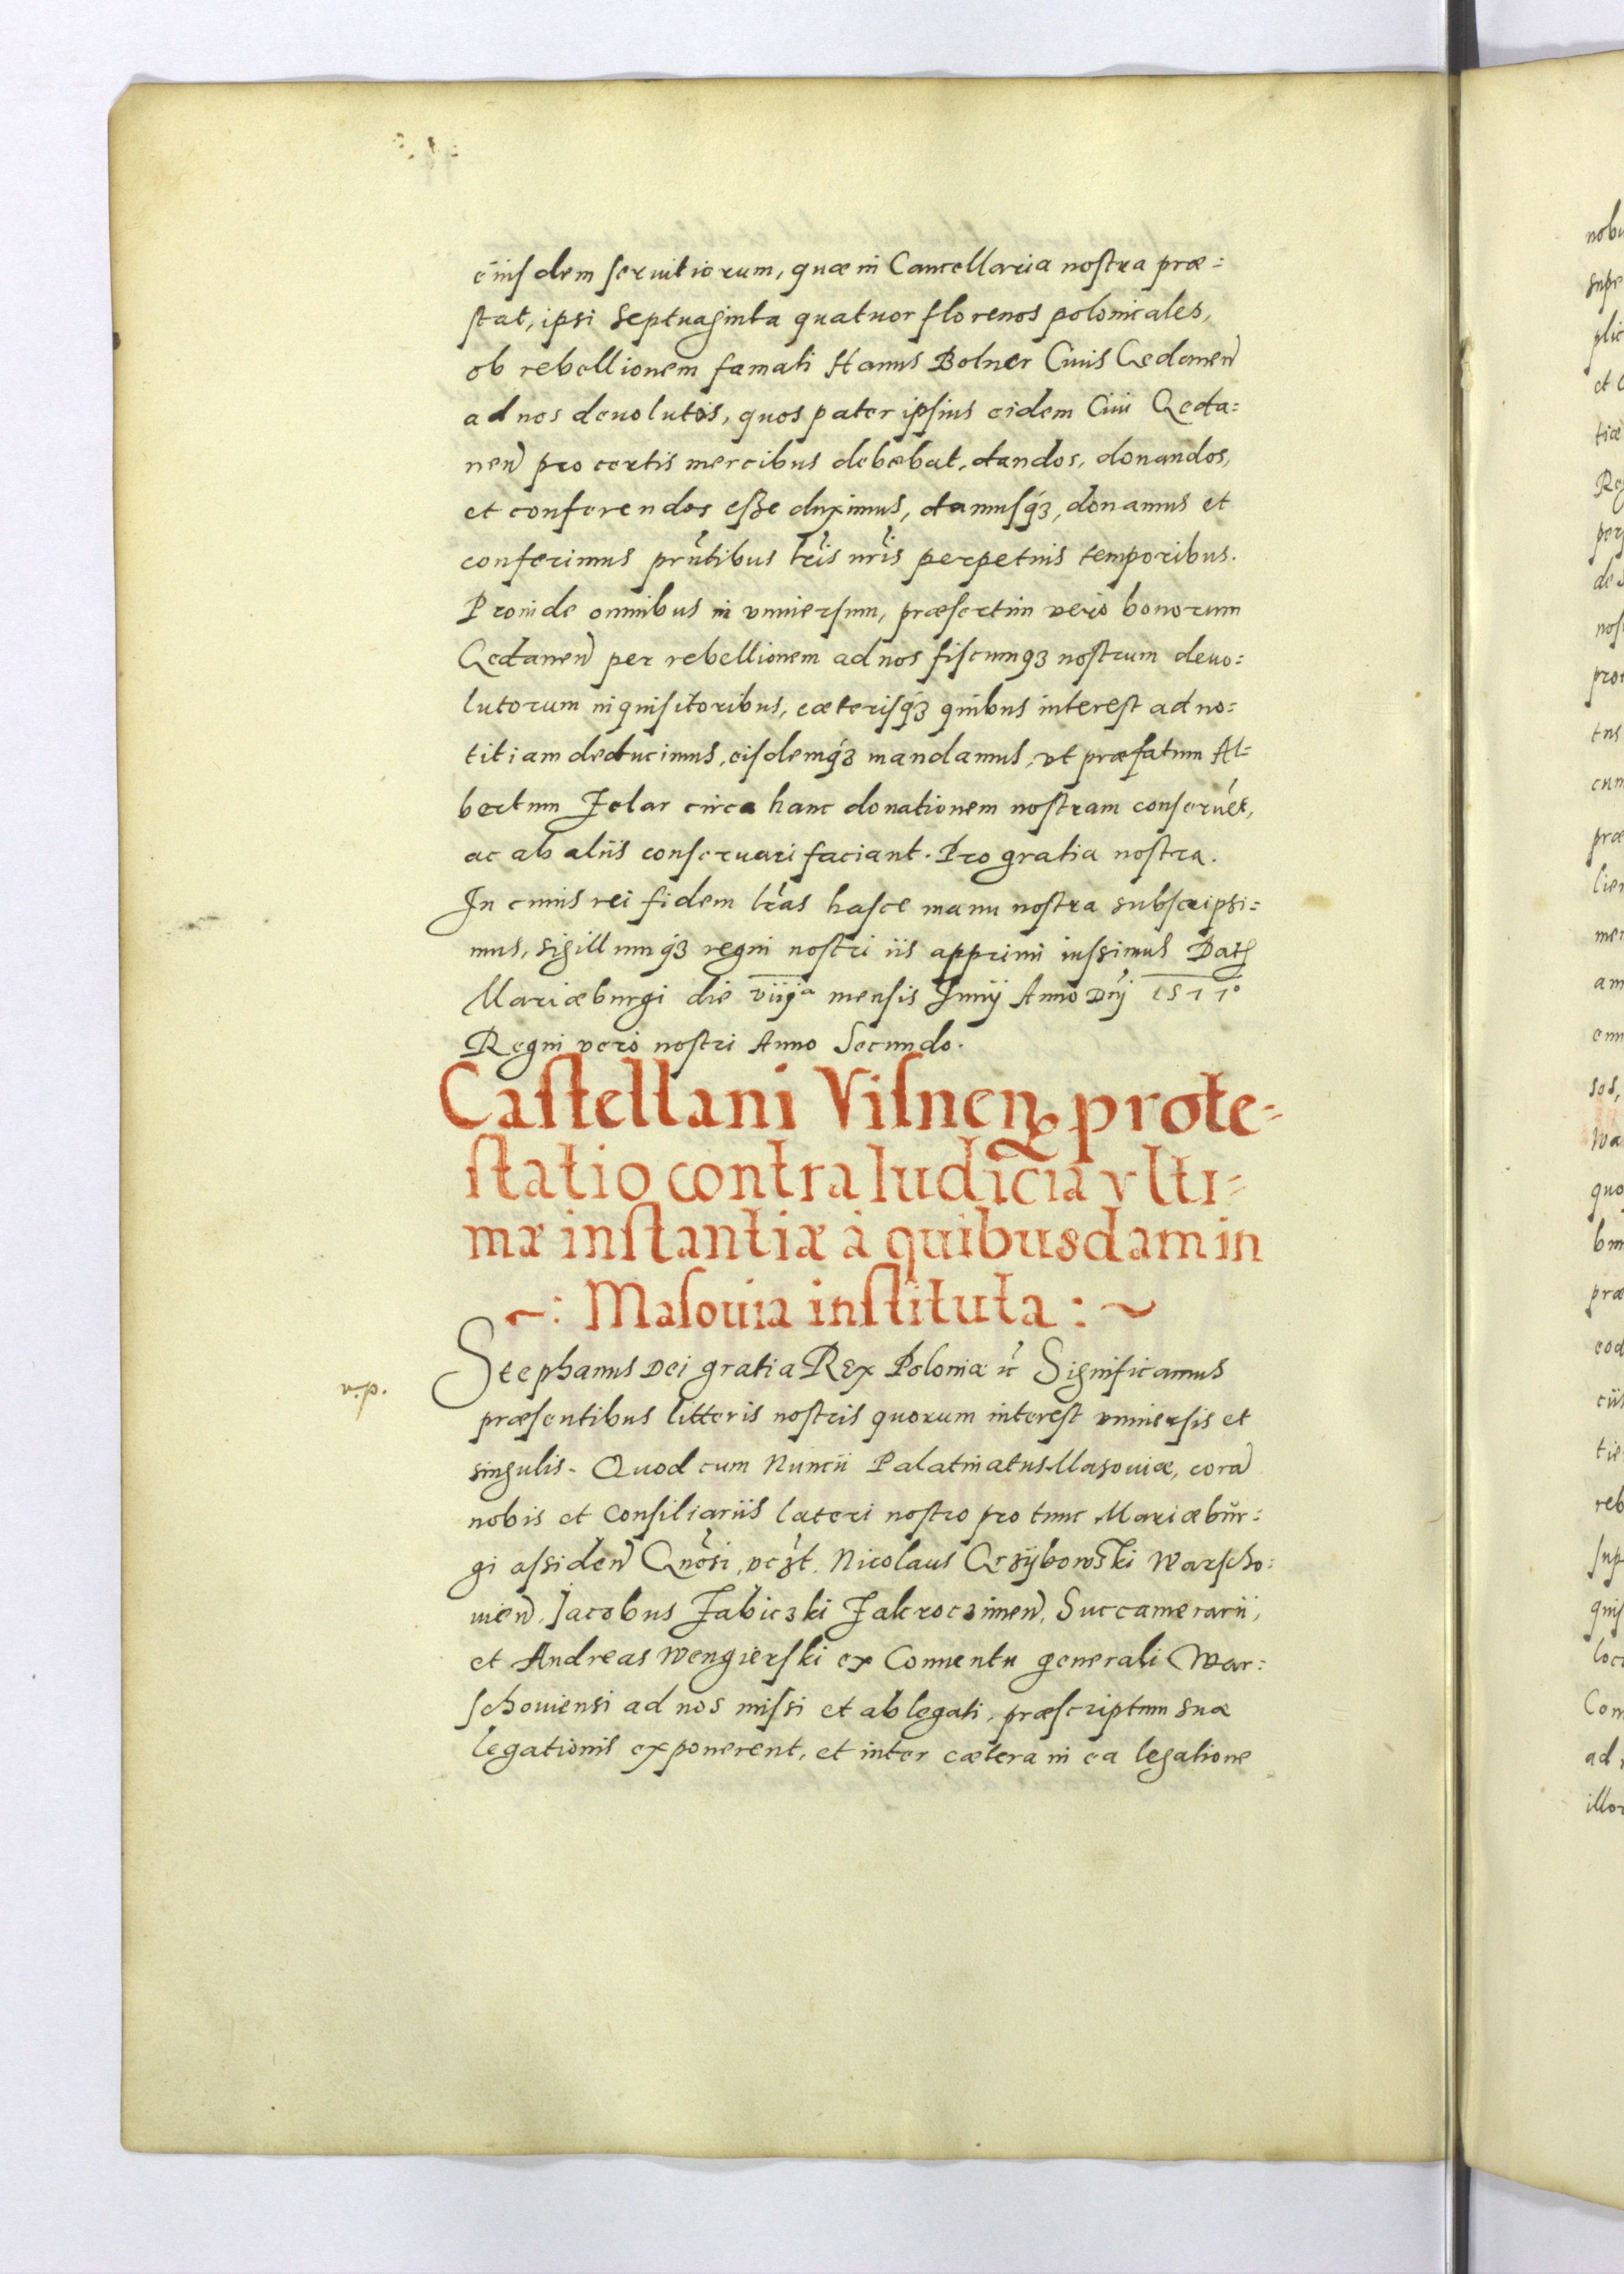 eiusdem seruitiorum, quæ in Cancellaria nostra præ=
stat, ipsi Septuaginta quatuor florenos polonicales,
ob rebellionem famati Hanus Bolner Ciuis Gedanen̄
ad nos deuolutos, quos pater ipsius eidem Ciui Geda=
nen̄ pro certis mercibus debebat, dandos, donandos,
et conferendos eße duximus, damusq́ꝫ, donamus et
conferimus prñtibus lr̃is nr̃is perpetuis temporibus.
Proinde omnibus in vniuersum, præsertim vero bonorum
Gedanen̄ per rebellionem ad nos fiscumqꝫ nostrum deuo=
lutorum inquisitoribus, cæterisq́ꝫ quibus interest ad no=
titiam deducimus, eisdemq́ꝫ mandamus, vt præfatum Al=
bertum Jelar circa hanc donationem nostram conseruēt,
ac ab aliis conseruari faciant. Pro gratia nostra.
In cuius rei fidem lr̃as hasce manu nostra subscripsi=
mus, sigillumq́ꝫ regni nostri iis apprimi iussimus Datꝭ
Mariæburgi die viijᵃ mensis Junij Anno Dñj 1577°
Regni vero nostri Anno Secundo.
Castellani Visnenꝭ prote=
statio contra Iudicia vlti=
mæ instantiæ à quibusdam in
~: Masouia instituta: ~
v.p.
Stephanus Dei gratia Rex Poloniæ ꝛc̃ Significamus
præsentibus litteris nostris quorum interest vniuersis et
singulis. Quod cum Nuncii Palatinatus Masouiæ, corā
nobis et Consiliariis lateri nostro pro tunc Mariæbŭr=
gi assiden̄ Gñosi, vcꝫt. Nicolaus Grzÿbowski Warscho=
uien̄, Jacobus Jabiczki Zakroczimen̄, Succamerarii,
et Andreas Wengierski ex Conuentu generali War=
schouiensi ad nos missi et ablegati, præscriptum suæ
legationis exponerent, et inter cætera in ea legatione